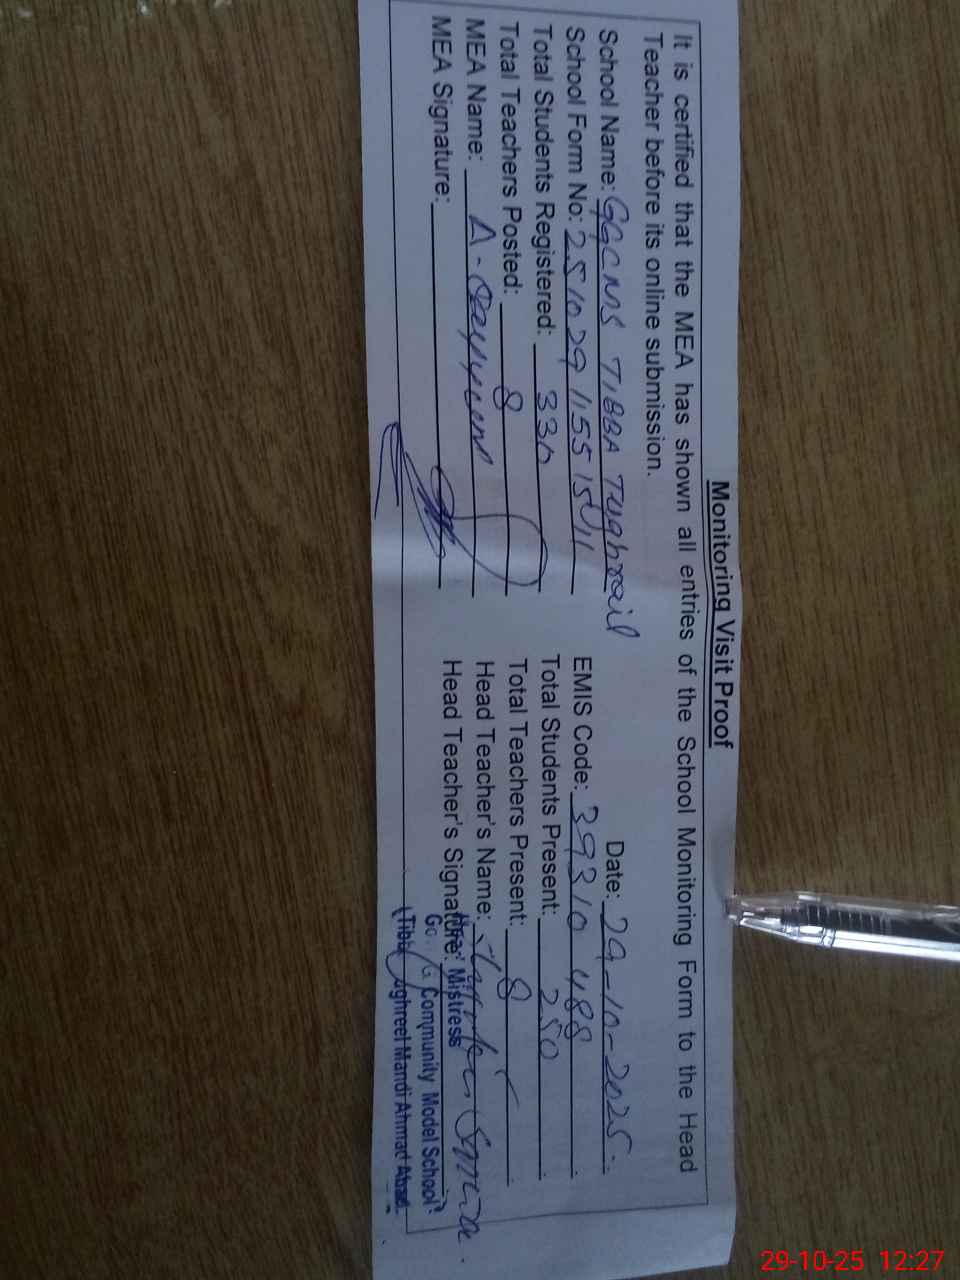 Monitoring Visit Proof
It is certified that the MEA has shown all entries of the School Monitoring Form to the Head
Teacher before its online submission.
Date: 29-10-2025
School Name: GGCMS TIBBA Tughrail
School Form No: EMIS Code: 39310488
Total Students Registered: 330 Total Students Present: 250
Total Teachers Posted: 8 Total Teachers Present: 8
MEA Name: A. Head Teacher's Name:
MEA Signature: Head Teacher's Signature:
Mistress
Community Model School
Mandi Ahmad Abad
29-10-25 12:27